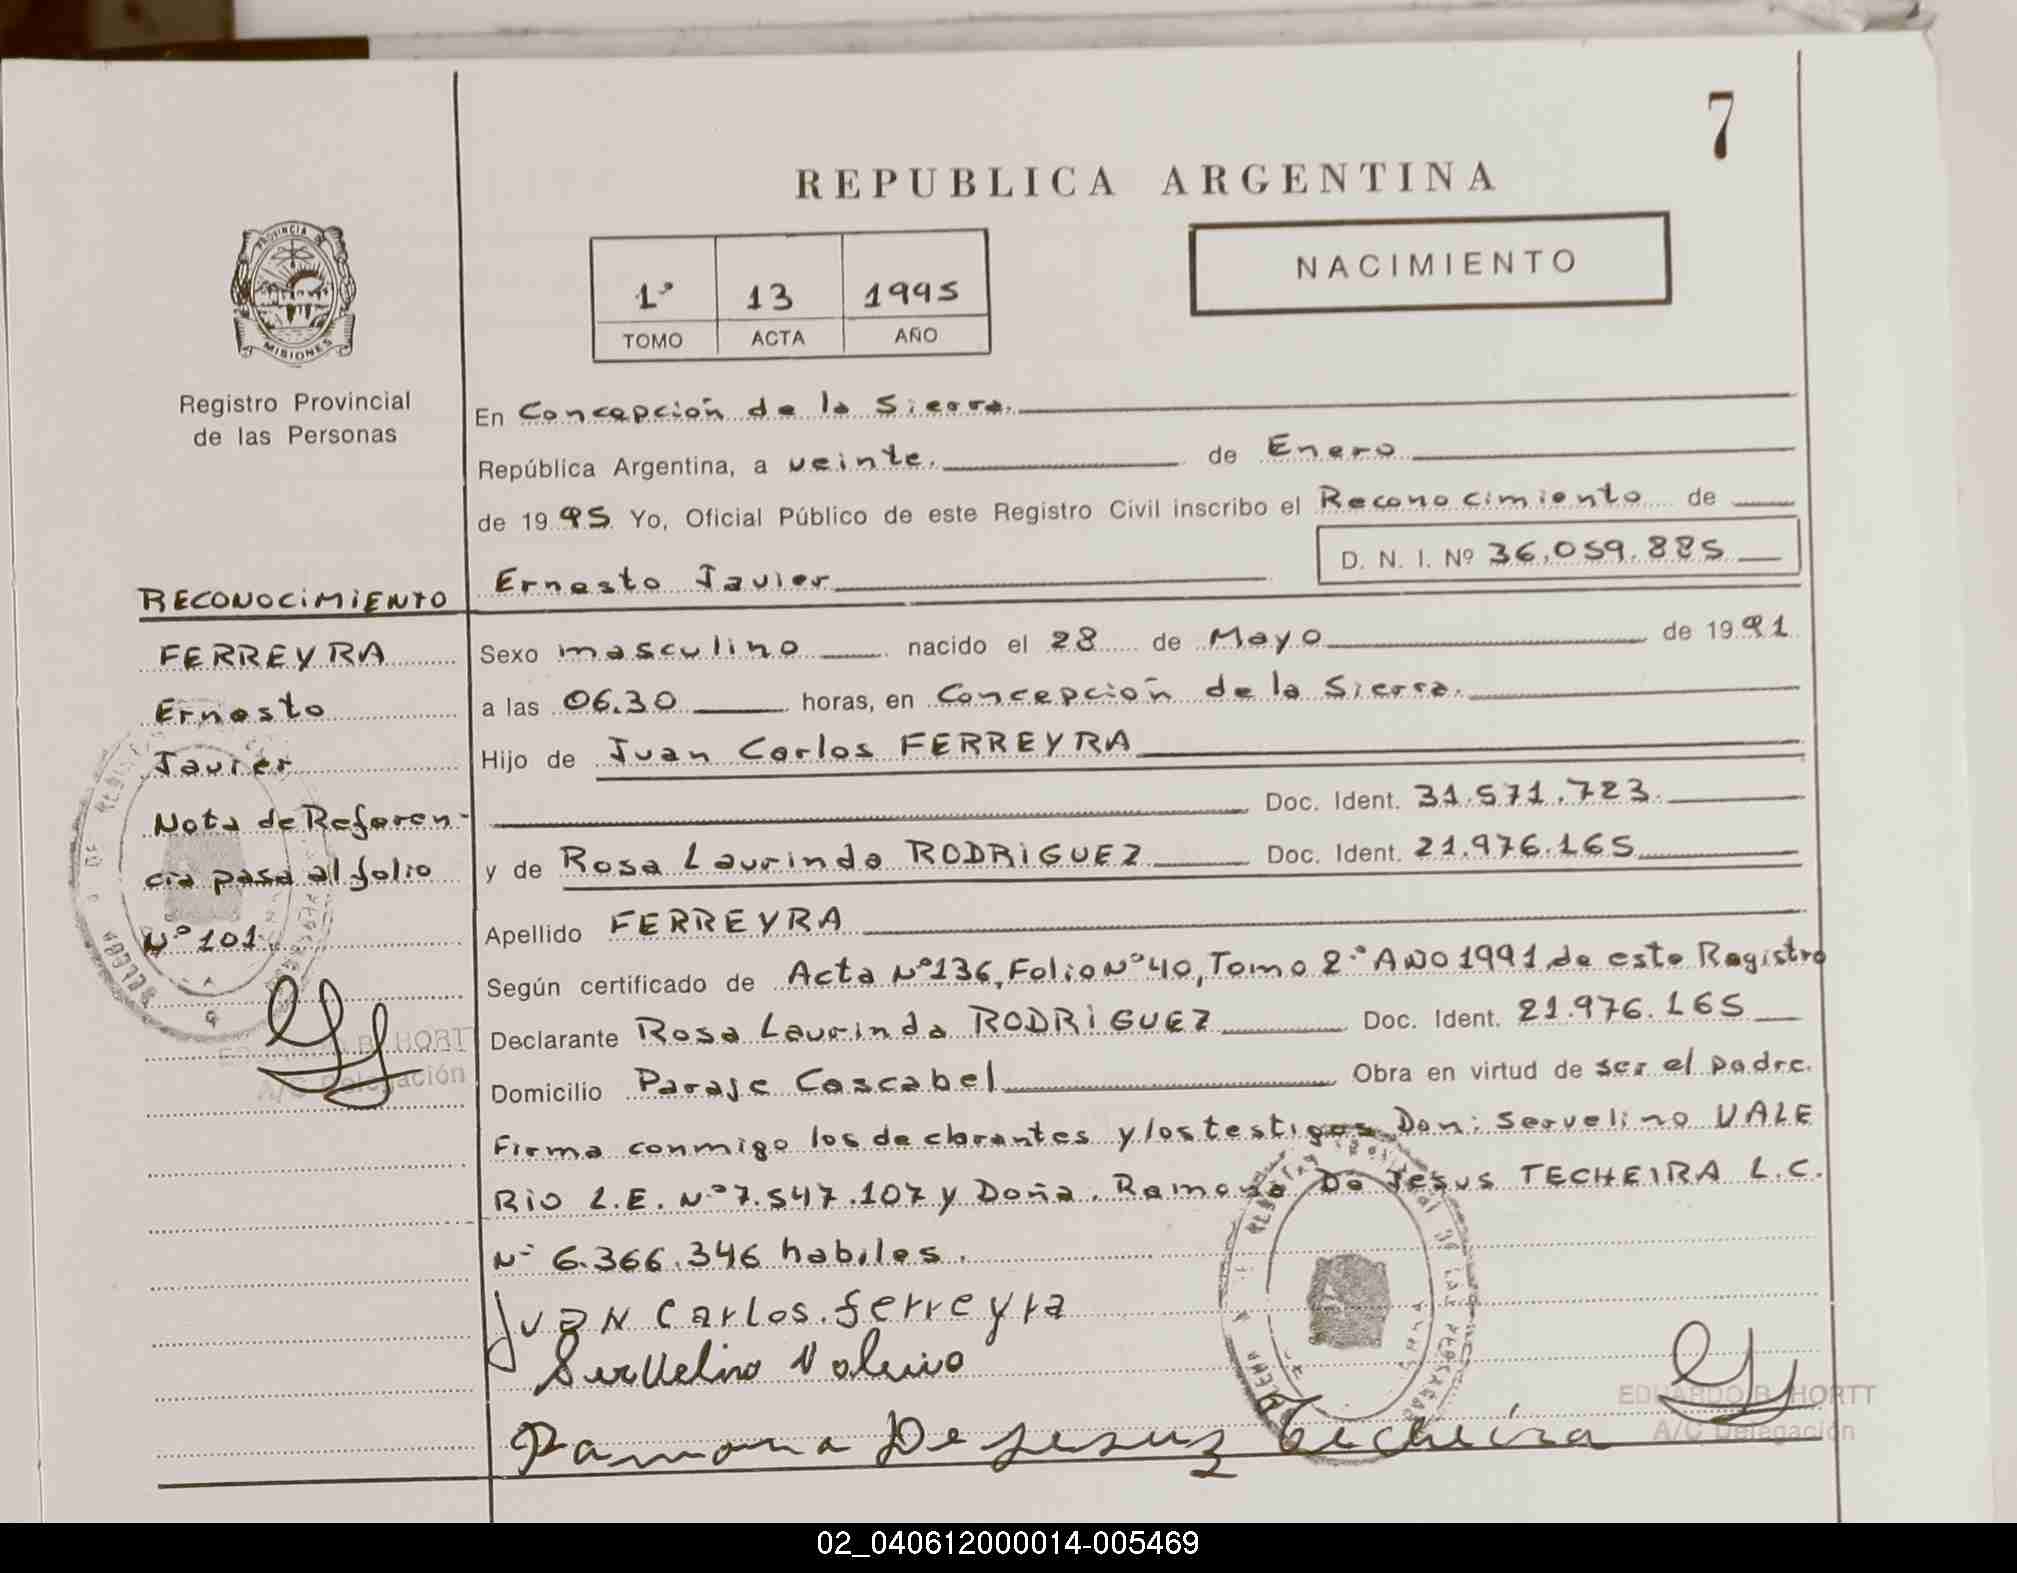 7
REPUBLICA ARGENTINA
NACIMIENTO
1º 13 1995
TOMO ACTA AÑO
PROVINCIA DE
MISIONES
Registro Provincial
de las Personas
En Concepción de la Sierra.
República Argentina, a veinte. de Enero
de 1995 Yo, Oficial Público de este Registro Civil inscribo el Reconocimiento de
D. N. I. Nº 36.059.885
Ernesto Javier
RECONOCIMIENTO
FERREYRA
Ernesto
Javier
Nota de Referen-
cia pasa al folio
Nº 101
EDUARDO B. HORTT
A/C Delegación
Sexo masculino nacido el 28 de Mayo de 1991
a las 06.30 horas, en Concepción de la Sierra.
Hijo de Juan Carlos FERREYRA
Doc. Ident. 31.571.723.
y de Rosa Laurinda RODRIGUEZ Doc. Ident. 21.976.165
Apellido FERREYRA
Según certificado de Acta Nº136, Folio Nº40, Tomo 2º AÑO 1991 de este Registro
Declarante Rosa Laurinda RODRIGUEZ Doc. Ident. 21.976.165
Domicilio Paraje Cascabel Obra en virtud de ser el padre.
Firma conmigo los declarantes y los testigos Don: Servelino VALE
RIO L.E. Nº 7.547.107 y Doña. Ramona De Jesus TECHEIRA L.C.
Nº 6.366.346 habiles.
Juan Carlos ferreyra
Servelino Valerio
Ramona De Jesus Techeira
EDUARDO B. HORTT
A/C Delegación
02_040612000014-005469